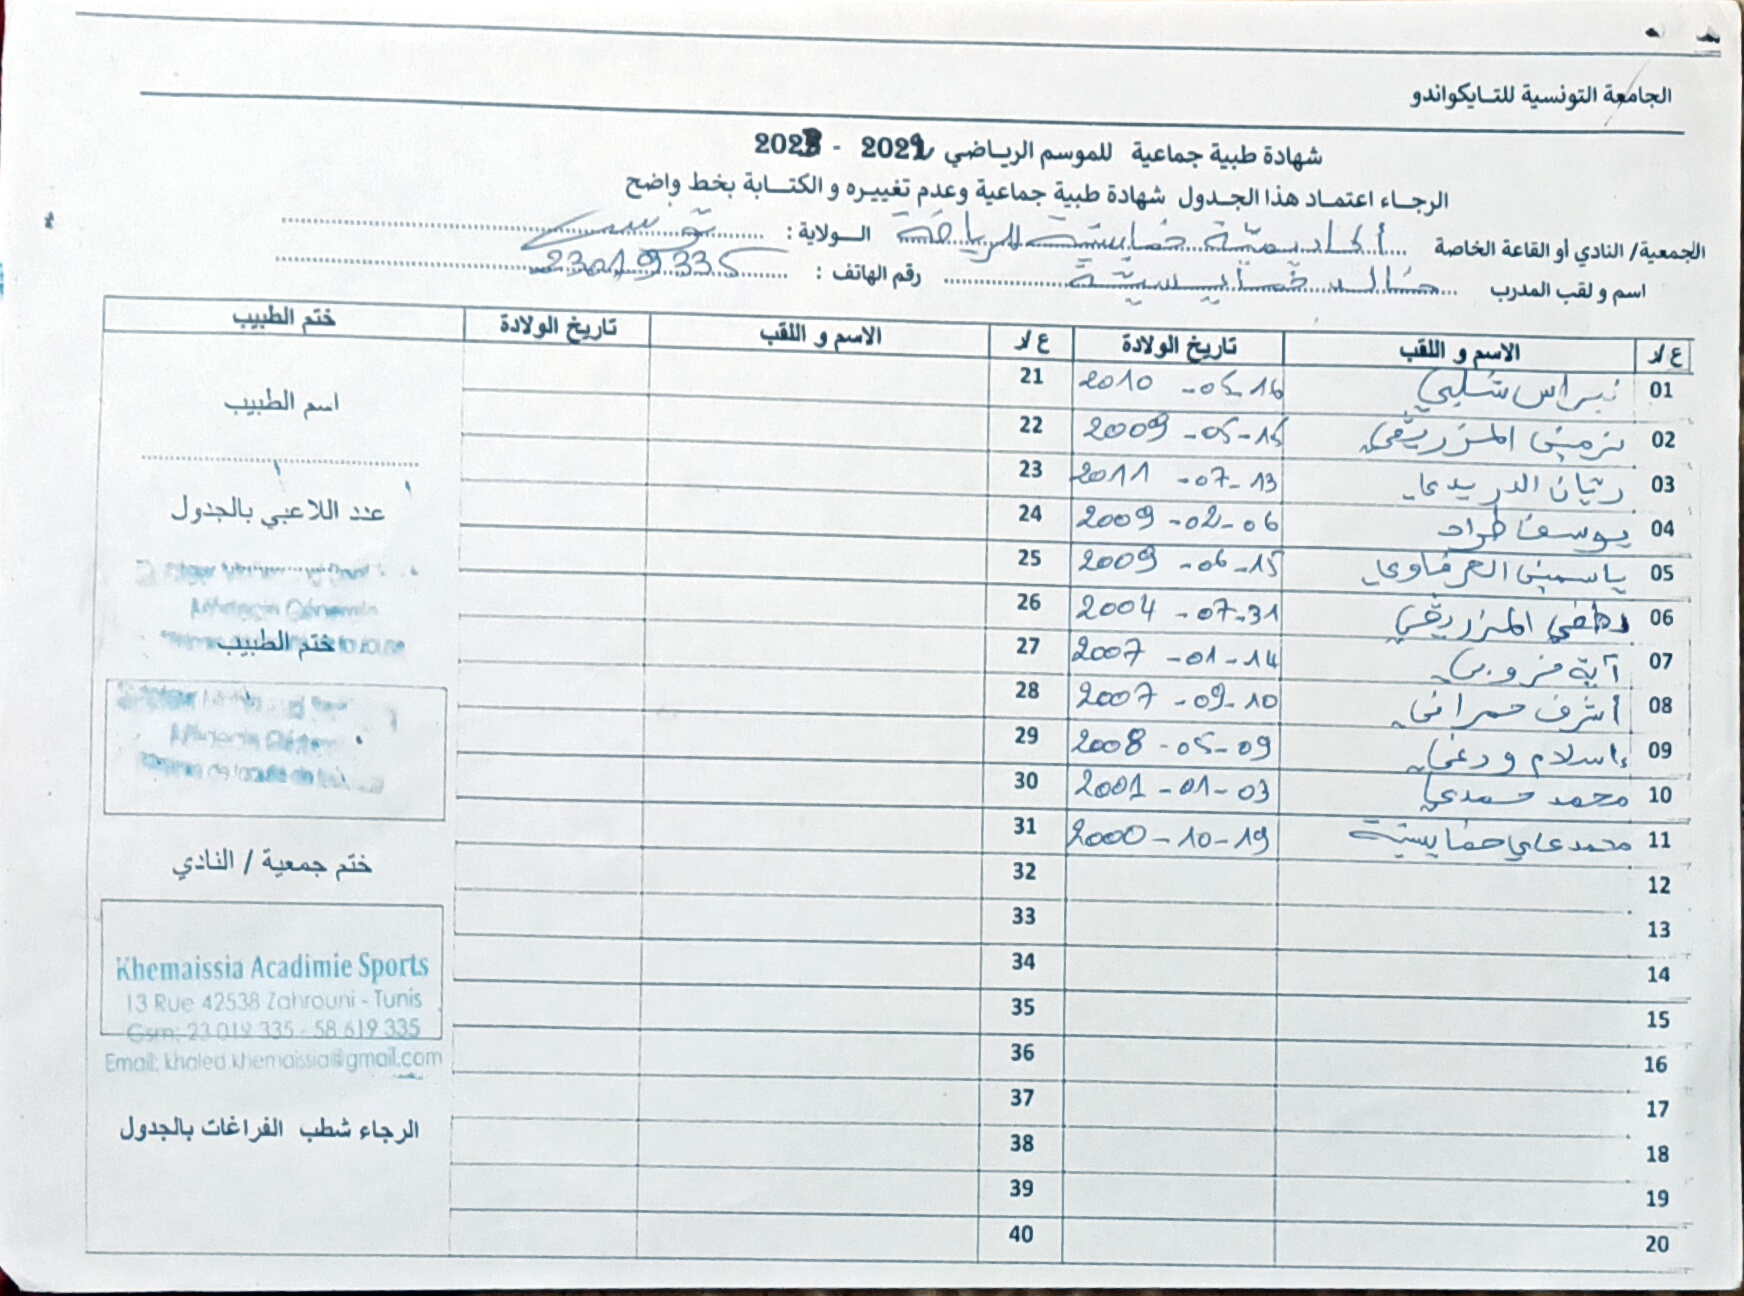 الجامعة التونسية للتايكواندو
شهادة طبية جماعية للموسم الرياضي 2022 - 2023
الرجاء اعتماد هذا الجدول شهادة طبية جماعية وعدم تغييره و الكتابة بخط واضح
الجمعية/ النادي أو القاعة الخاصة أكاديمية خمايسية للرياضة الولاية : تونس
اسم و لقب المدرب خالد خمايسية رقم الهاتف : 23019335
ع/ر الاسم و اللقب تاريخ الولادة ع/ر الاسم و اللقب تاريخ الولادة ختم الطبيب
01 نبراس شلبي 2010 -05-16 21
02 نرمين المزريقي 2009 -05-15 22
03 ريان الدريدي 2011 -07-13 23
04 يوسف طراد 2009 -02-06 24
05 ياسمين العرفاوي 2009 -06-15 25
06 المزريقي 2004 -07-31 26
07 آية 2007 -01-14 27
08 أشرف حمراني 2007 -09-10 28
09 إسلام ودغي 2008 -05-09 29
10 محمد حمدي 2001 -01-03 30
11 محمد علي خمايسية 2000-10-19 31
12 32
13 33
14 34
15 35
16 36
17 37
18 38
19 39
20 40
اسم الطبيب
عند اللاعبي بالجدول
ختم الطبيب
ختم جمعية / النادي
Khemaissia Acadimie Sports
13 Rue 42538 Zahrouni - Tunis
Gsm: 23 019 335 - 58 619 335
Email: khaled.khemaissia@gmail.com
الرجاء شطب الفراغات بالجدول